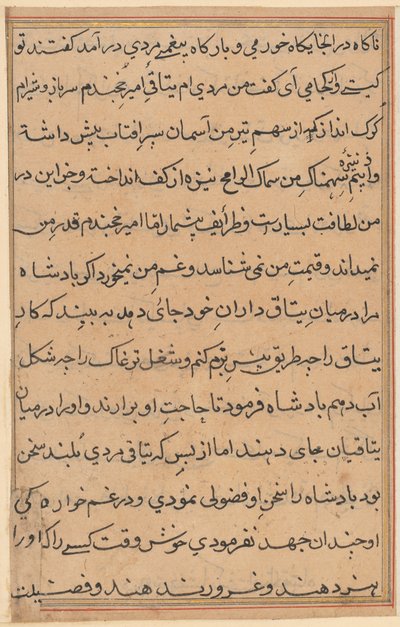 ناکاه در انجایکاه خورمی و بارکاه بیغمی مردی در آمد کفتند تو
کیستی و از کجامی آی کفت من مردی ام یتاقی امیر خجندم سرباز و شیرام
کرک انداز که از سهم تیر من آسمان سپر افتاب پیش داشته
و از بیم نیزه سهمناک من سماک الرامح نیزه از کف انداخته و جز این در
من لطافت بسیارست و ظرایف بیشمار اما امیر خجندم قدر من
نمیداند و قیمت من نمی شناسد و غم من نمیخورد اکر بادشاه
مرا در میان یتاق داران خود جای دهد به بیند که کار
یتاق را چه طریق پیش برم کنم و شغل ترغاک را چه شکل
آب دهم بادشاه فرمود تا حاجت او برارند و او را درمیان
یتاقیان جای دهند اما از بس که یتاقی مردی بلند سخن
بود بادشاه را سخن او فضولی نمودی و در غم خواره کی
او چندان جهد نفرمودی خوش وقت کسی را که او را
هنر دهند و غرور ندهند و فضیلت